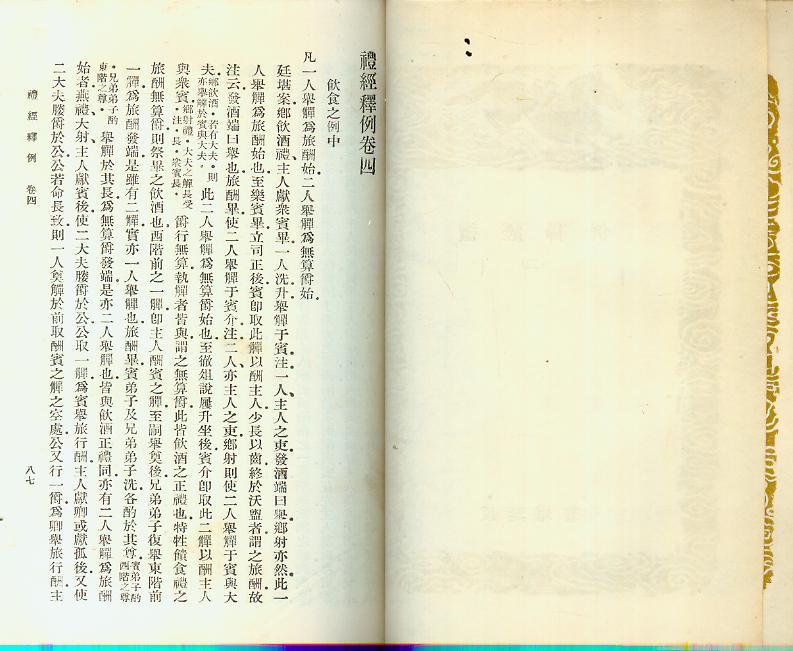 禮經釋例卷四
飲食之例中
凡一人舉觶爲旅酬始。二人舉觶爲無算爵始。
廷堪案鄉飲酒禮主人獻衆賓畢。一人洗升舉觶于賓。注。一人主人之吏。發酒端曰舉。鄉射亦然。此一
人舉觶爲旅酬始也。至樂賓畢。立司正後。賓即取此觶以酬主人。少長以齒。終於沃盥者。謂之旅酬。故
注云。發酒端曰舉也。旅酬畢。使二人舉觶于賓介。注。二人亦主人之吏。鄉射則使二人舉觶于賓與大
夫。鄉飲酒。若有大夫。則亦舉觶於賓與大夫。此二人舉觶爲無算爵始也。至徹俎說屨升坐後。賓介即取此二觶以酬主人
與衆賓。鄉射禮。大夫之觶長受。注。長。衆賓長。爵行無算。執觶者皆與。謂之無算爵。此皆飲酒之正禮也。特牲饋食禮之
旅酬無算爵。則祭畢之飲酒也。西階前之一觶。即主人酬賓之觶。至嗣舉奠後。兄弟弟子復舉東階前
一觶。爲旅酬發端。是雖有二觶。實亦一人舉觶也。旅酬畢。賓弟子及兄弟弟子洗。各酌於其尊。賓弟子酌西階之尊
。兄弟弟子酌東階之尊。舉觶於其長。爲無算爵發端。是亦二人舉觶也。皆與飲酒正禮同。亦有二人舉觶爲旅酬
始者。燕禮大射。主人獻賓後。使二大夫媵爵於公。公取一觶。爲賓舉旅行酬。主人獻卿或獻孤後。又使
二大夫媵爵於公。公若命長致。則一人奠觶於前取酬賓之觶之空處。公又行一爵。爲卿舉旅行酬。主
禮經釋例 卷四
八七